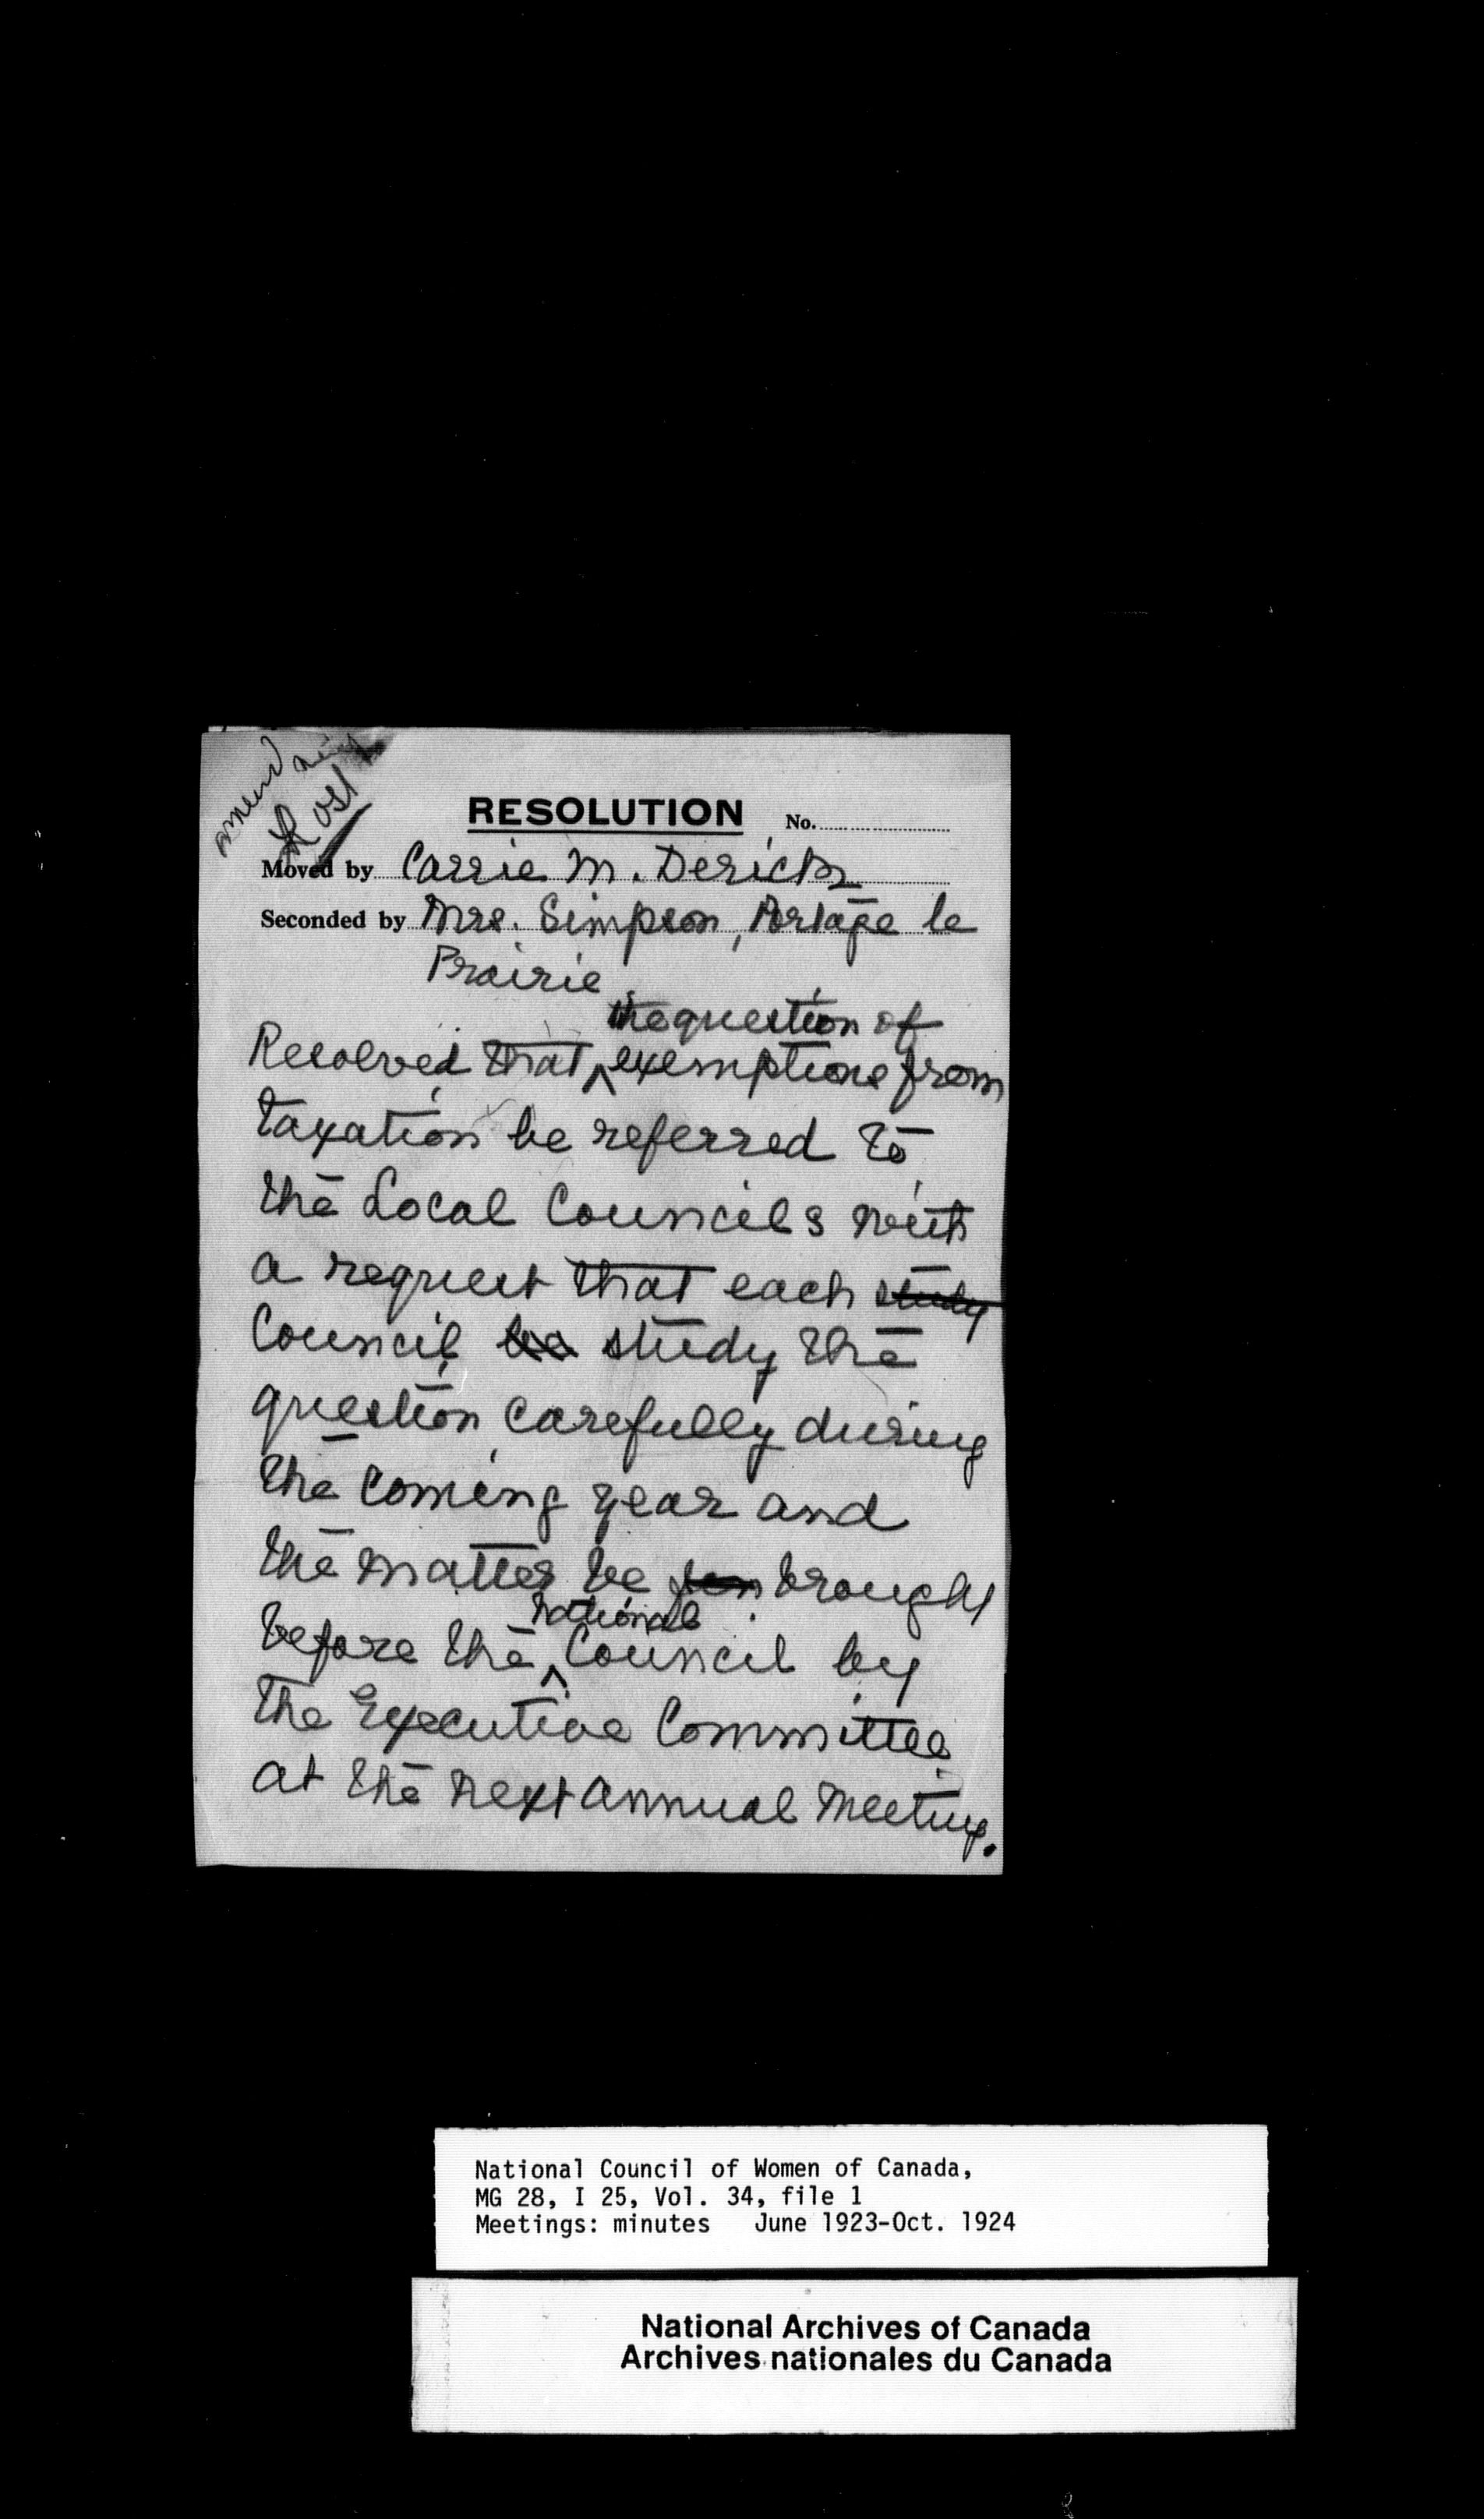 amendment
Lost
RESOLUTION No.
Moved by Carrie M. Derick
Seconded by Mrs. Simpson, Portage le
Prairie
the question of
Resolved that ^ exemptions from
taxation be referred to
the Local Councils with
a request that each study
Council be study the
question carefully during
the coming year and
the matter be brought
national
before the ^ Council by
the Executive Committee
at the next annual meeting.
National Council of Women of Canada,
MG 28, I 25, Vol. 34, file 1
Meetings: minutes June 1923-Oct. 1924
National Archives of Canada
Archives nationales du Canada